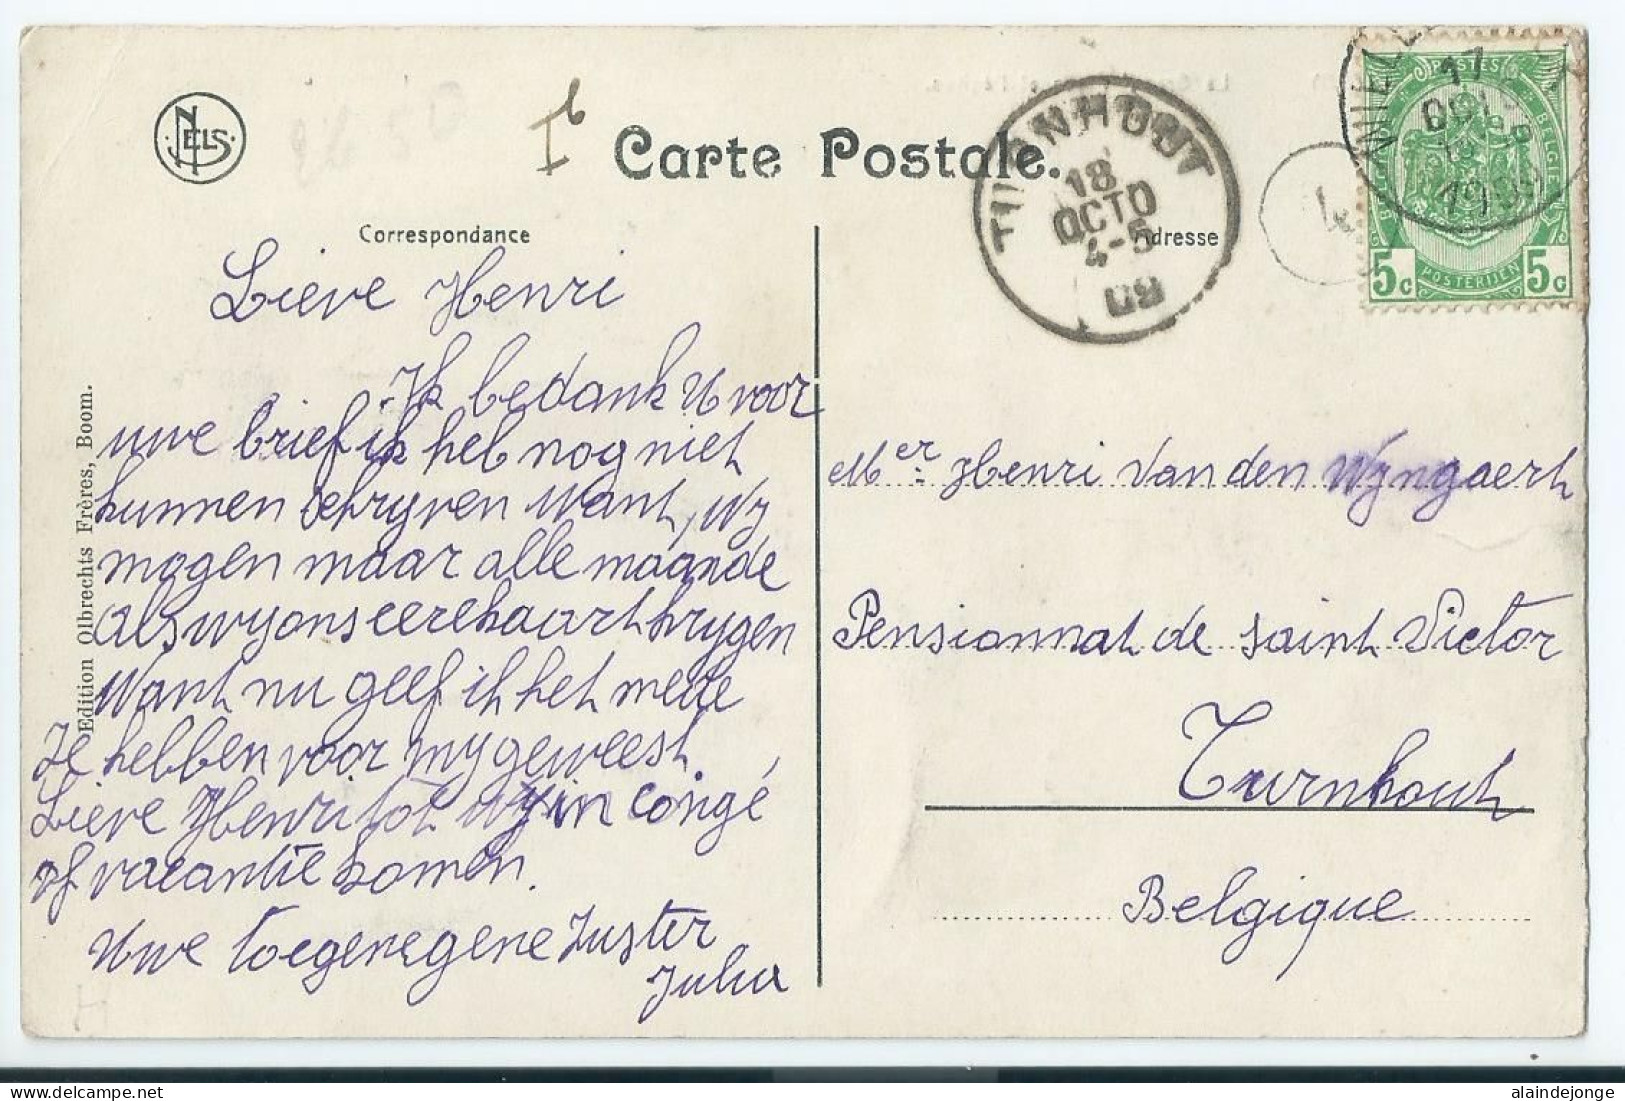 NELS
I b
Carte Postale.
Correspondance
Adresse
TURNHOUT
18
OCTO
4-5
09
NIEL
17
OCTO
1909
POSTES
BELGIË
5c
POSTERIJEN
5c
Edition Olbrechts Frères, Boom.
Lieve Henri
Ik bedank U voor
uwe brief ik heb nog niet
kunnen schryven want, wy
mogen maar alle maande
als wy ons eere kaart krygen
want nu geef ik het mede
Ze hebben voor my geweest.
Lieve Henri tot wy in congé
of vacantie komen.
Uwe toegenegene Zuster
Julia
Mer. Henri Van den Wyngaert
Pensionnat de Saint Victor
Turnhout
Belgique
alaindejonge